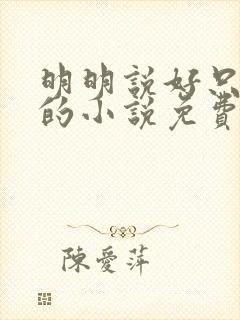 明明說好只
的小說免費
陳愛萍